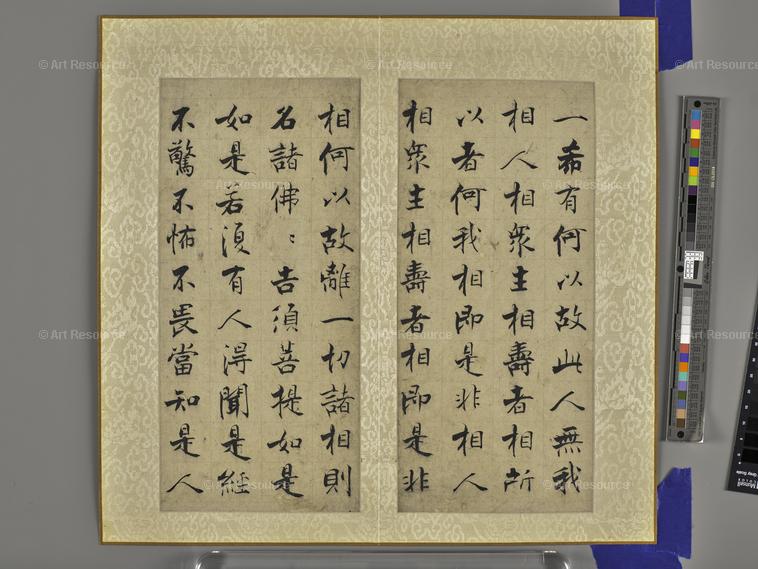 一希有何以故此人無我
相人相衆生相壽者相所
以者何我相即是非相人
相衆生相壽者相即是非
相何以故離一切諸相則
名諸佛〻告須菩提如是
如是若復有人得聞是經
不驚不怖不畏當知是人
© Art Resource
© Art Resource
© Art Resource
© Art Resource
© Art Resource
© Art Resource
© Art Resource
© Art Resource
© Art Resource
© Art Resource
© Art Resource
© Art Resource